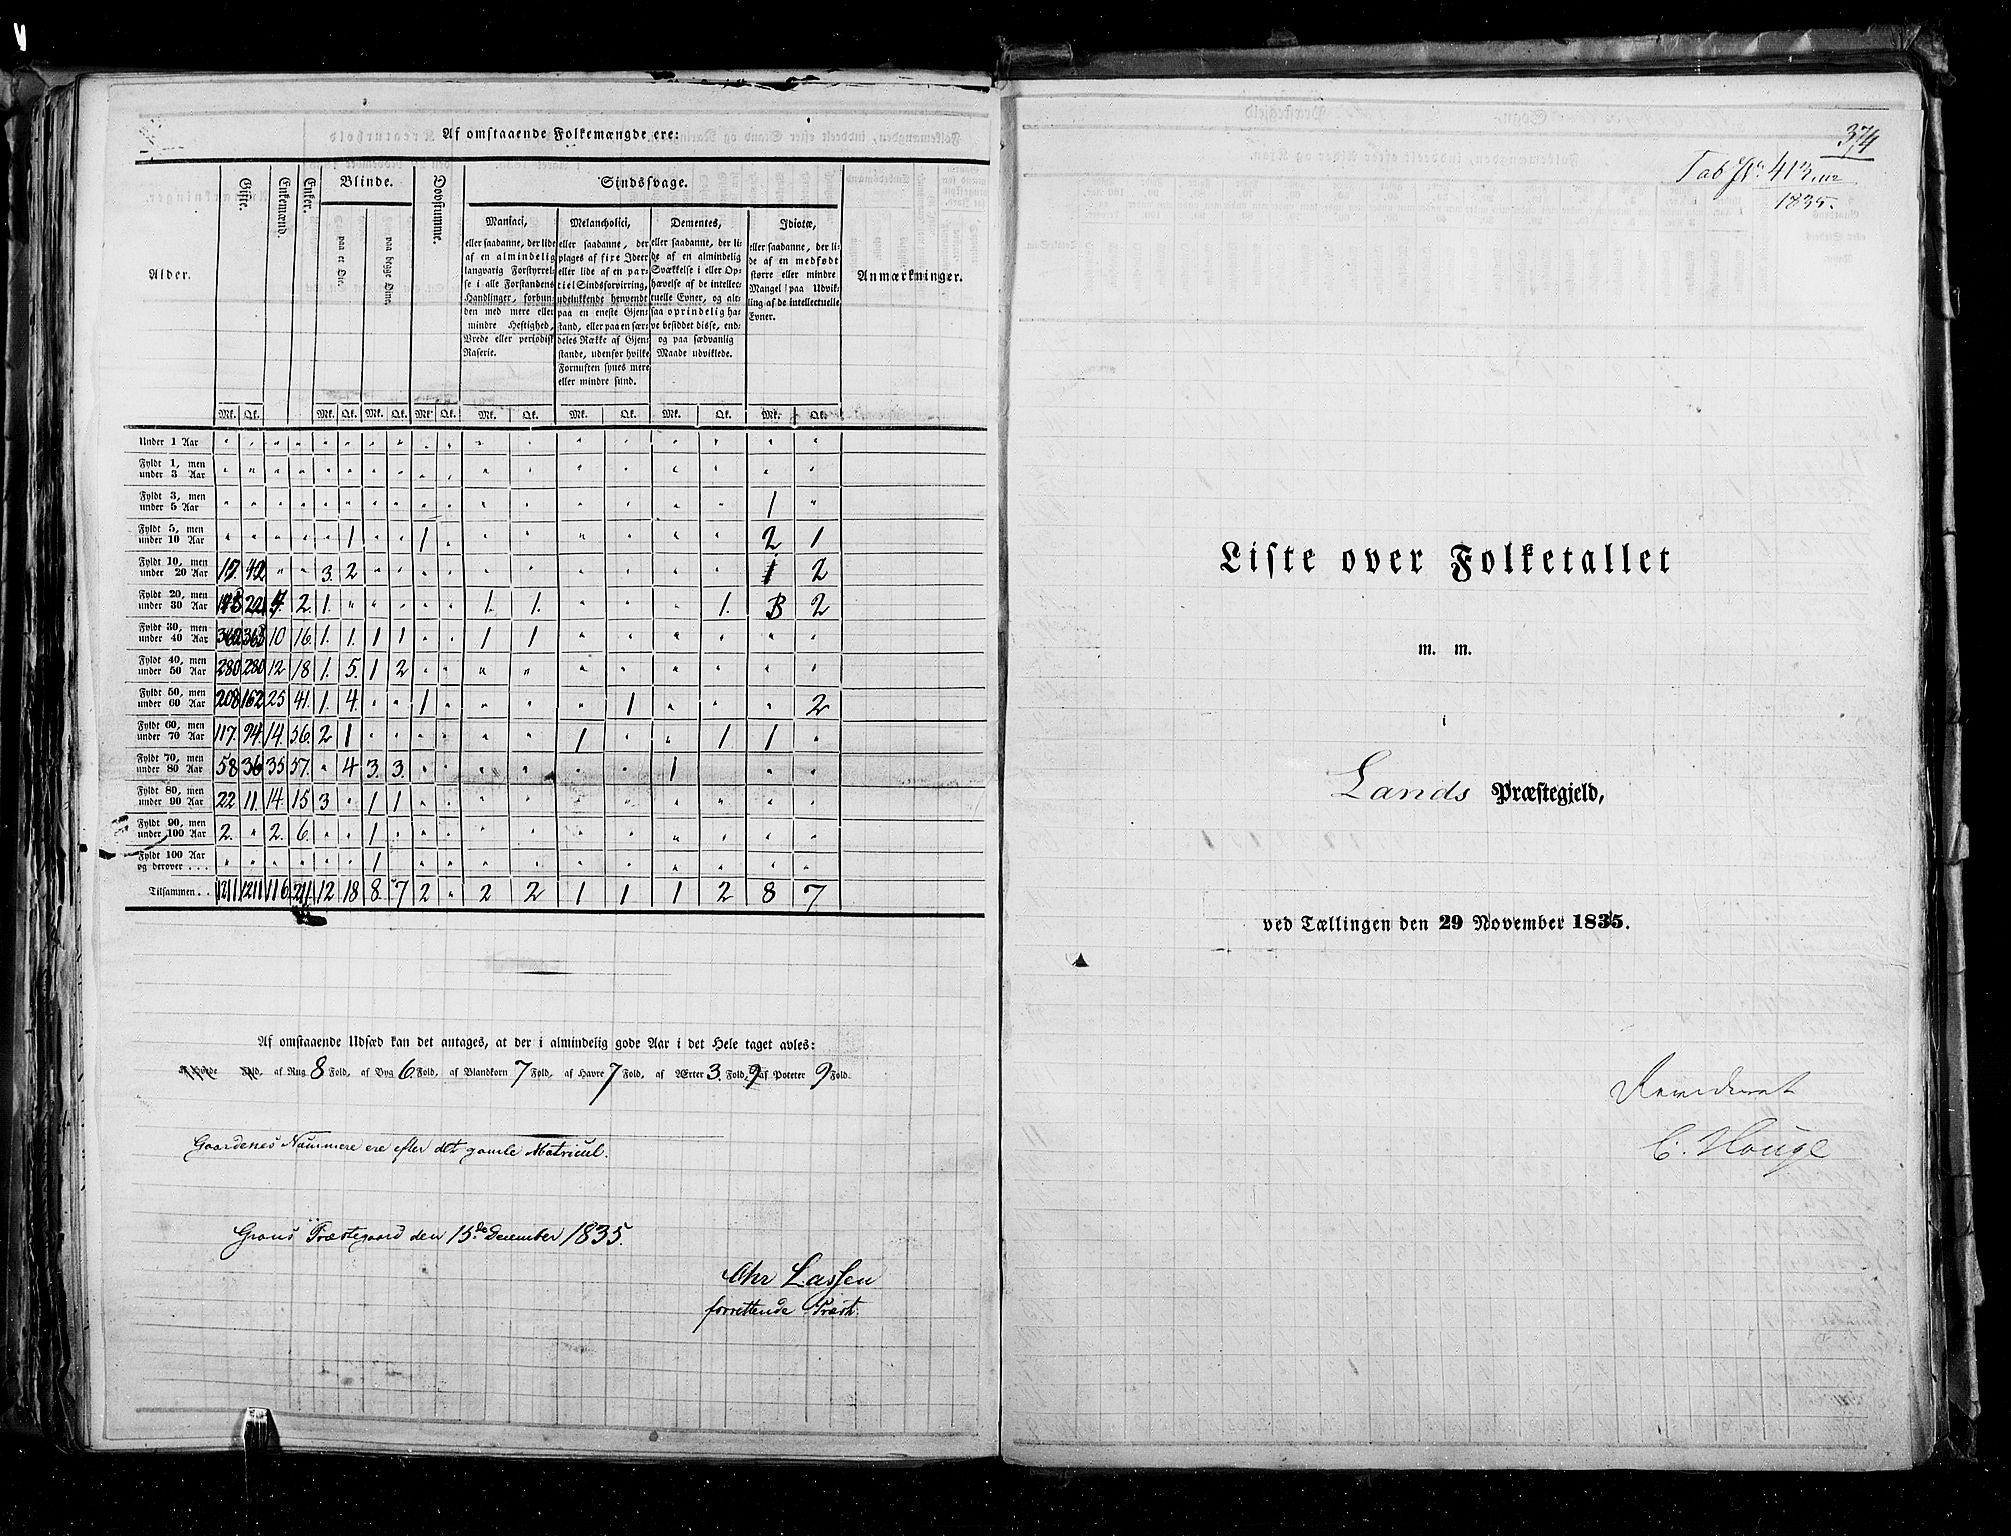 Af omstaaende Folkemængde ere:
Alder. | Gifte. | Enkemænd. | Enker. | Blinde. | Dovstumme. | Sindssvage. | Anmærkninger.
paa et Øie. | paa begge Øine.
Maniaci, | Melancholici, | Dementes, | Idiotæ,
eller saadanne, der lide af en almindelig langvarig Forstyrrelse i alle Forstandens Handlinger, forbunden med mere eller mindre Heftighed, Vrede eller periodisk Raserie.
eller saadanne, der plages af fixe Ideer eller lide af en partiel Sindsforvirring, udelukkende henvendt paa en eneste Gjenstand, eller paa en særdeles Række af Gjenstande, udenfor hvilke Fornuften synes mere eller mindre sund.
eller saadanne, der lide af en almindelig Svækkelse i eller Ophævelse af de intellectuelle Evner, og alesaa oprindelig have besiddet disse, endog paa sædvanlig Maade udviklede.
eller saadanne, der lide af en medfødt større eller mindre Mangel paa Udvikling af de intellectuelle Evner.
Mk. Qk. | Mk. Qk. Mk. Qk. | Mk. Qk. | Mk. Qk. | Mk. Qk. | Mk. Qk. | Mk. Qk.
Under 1 Aar " " " " " " " " " " " " " " " " " "
Fyldt 1, men under 3 Aar " " " " " " " " " " " " " " " " " "
Fyldt 3, men under 5 Aar " " " " " " " " " " " " " " " " 1 "
Fyldt 5, men under 10 Aar " " " " " 1 " " 1 " " " " " " " 2 1
Fyldt 10, men under 20 Aar " " 3. 2 " " " " " " " " " " 1 2
Fyldt 20, men under 30 Aar 2. 1. " " " " " 1. 1. " " " 1. 2
Fyldt 30, men under 40 Aar 10 16. 1. 1. 1 1 " " 1 1 " " " " " "
Fyldt 40, men under 50 Aar 280 280 12 18 1. 5. 1 2 " " " " " " " " " "
Fyldt 50, men under 60 Aar 208 162 25 41. 1. 4. " " 1 " " " " 1 " " " 2
Fyldt 60, men under 70 Aar 117. 94 14. 56. 2 1 " " " " " " 1 " " 1 1 "
Fyldt 70, men under 80 Aar 58 36 35 57. " 4 3. 3. " " " " " " 1 " "
Fyldt 80, men under 90 Aar 22 11. 14. 15 3 " 1 1 " " " " " " " " " "
Fyldt 90, men under 100 Aar 2. " 2. 6. " " 1 " " " " " " " " " " "
Fyldt 100 Aar og derover . . . " " " " " " 1 " " " " " " " " " " "
Tilsammen . . 1211 1211 116 211. 12 18 8. 7 2 " 2 2 1 1 1 2 8 7.
Af omstaaende Udsæd kan det antages, at der i almindelig gode Aar i det Hele taget avles:
af Hvede Fold, af Rug 8 Fold, af Byg 6 Fold, af Blandkorn 7 Fold, af Havre 7 Fold, af Ærter 3. Fold, af Poteter 9 Fold.
Gaardenes Nummere ere efter det gamle Matricul.
Grans Præstegaard den 15de December 1835.
Chr Lassen
forrettende Præst.
374
Tab No 413
1835.
Liste over Folketallet
m. m.
i
Lands Præstegjeld,
ved Tællingen den 29 November 1835.
Revideret
C. Houge